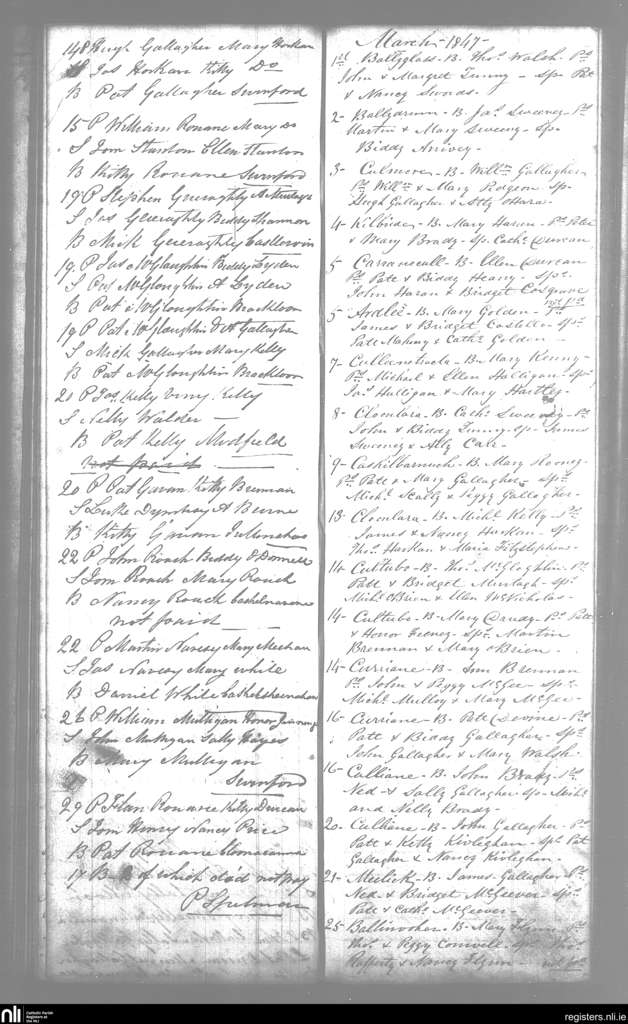 148 Hugh Gallagher Mary Horkan
S Jas Horkan Kitty Do
B Pat Gallagher Swinford
15 P William Ronane Mary Do
S Tom Stanton Ellen Stanton
B Kitty Ronane Swinford
19 P Stephen Gueraghty A Murtagh
S Jas Gueraghty Biddy Shannon
B Mick Gueraghty
19 P Jas McGloughlin Biddy Lyden
S Pat McGloughlin A Lyden
B Pat McGloughlin
19 P Pat McGloughlin Gallagher
S Mick Gallagher Mary Kelly
B Pat McGloughlin
21 P Jas Kelly Kelly
S Nelly Walder
B Pat Kelly Midfield
not paid
20 P Pat Gavan Kitty Brennan
S Luke A Burne
B Kitty
22 P John Roach Biddy O Donnell
S Tom Roach Mary Roach
B Nancy Roach
not paid
22 P Martin Navesy Mary Meehan
S Jas Navesy Mary White
B Daniel White
26 P William Mulligan Honor
S John Mulligan Sally Hayes
B Mary Mulligan
Swinford
29 P Filan Ronane Kitty Duncan
S Tom Henry Nancy Price
B Pat Ronane
17 B of which did not pay
March 1847
1st Ballyglass - B. Thos. Walsh. Pts
John & Margret Tunny - Sps. Pat
& Nancy Swords.
2 - B. Jas. Sweeney - Pts
Martin & Mary Sweeny - Sps.
Biddy
3 - Culmore - B. Willm Gallagher
Pts Willm & Mary Rodgeon Sps.
Hugh Gallagher & Atty O'Hara.
4 - Kilbride - B. Mary Haran - Pts. Patt
& Mary Brady - Sp. Cathe. Duncan
5 Carrowcall - B. Ellen Duncan
Pts Patt & Biddy Heany - Sps.
John Haran & Bridget Cosgrave
not pd.
5 - Ardlee - B. Mary Golden - Pts
James & Bridget Costello - Sps.
Patt Mahony & Cathe. Golden -
7 - - B. Mary Kenny -
Pts Michael & Ellen Hulligan - Sps
Jas. Hulligan & Mary Hartley
8 - Cloonlara - B. Cathe. Sweeney - Pts
John & Biddy Tunny - Sps - James
Sweeney & Atty Carr -
9 - - B. Mary Rooney -
Pts Patt & Mary Gallagher - Sps
Michl. Scally & Peggy Gallagher -
13 - Cloonlara - B. Michl. Kelly - Pts
James & Nancy Horkan - Sps
Thos. Horkan & Maria Fitzstephens -
14 - Cultubo - B. Thos. McGloghlin - Pts
Patt & Bridget Murtagh - Sps
Michl. OBrien & Ellen McNicholas -
14 - Cultubo - B. Mary Pts Patt
& Honor Feeney - Sps. Martin
Brennan & Mary OBrien -
14 - Curriane - B - Ann Brennan
Pts John & Peggy McGee - Sps.
Michl. Mulloy & Mary McGee -
16 - Curriane - B. Patt Devine - Pts
Patt & Biddy Gallagher - Sps
John Gallagher & Mary Walsh -
16 - Culliane - B. John Brady - Pts
Ned & Sally Gallagher - Sps - Michl.
and Nelly Brady -
20 - Culliane - B - John Gallagher - Pts
Patt & Kitty Kivleghan - Sps Pat
Gallagher & Nancy Kivleghan -
21 - Meelick - B. James Gallagher - Pts
Ned & Bridget McGeever - Sps
Patt & Cathe. McGeever -
25 - - B. Mary Flynn - Pts
Thos. & Peggy Conwell - Sps Thos
Rafferty & Nancy Flynn - not pd.
nli Catholic Parish Registers at the NLI
registers.nli.ie